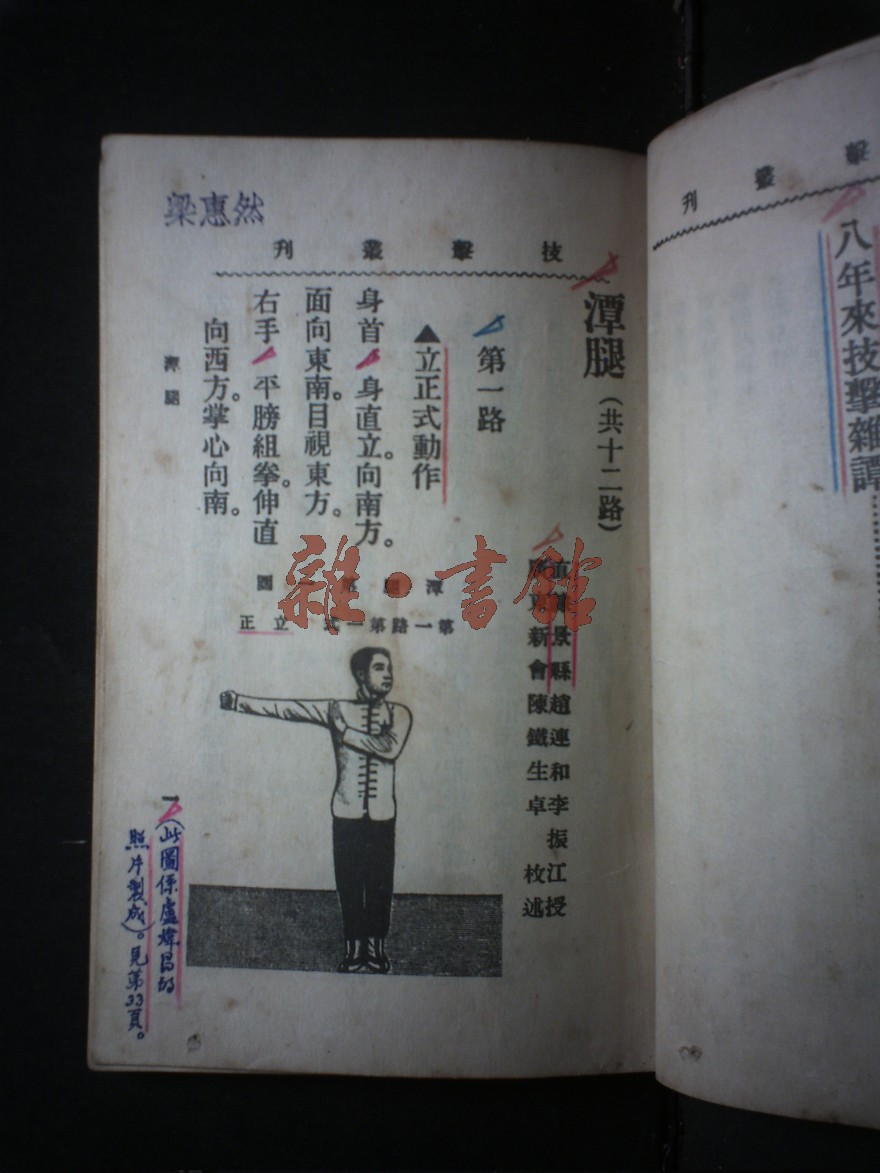 八年來技擊雜譚
梁惠然
技擊叢刊
潭腿(共十二路)
景縣趙連和李振江授
新會陳鐵生卓枚述
第一路
▲立正式動作
身首 身直立。向南方。
面向東南。目視東方。
右手 平膀組拳。伸直
向西方。掌心向南。
潭腿
第一路第一式 立正
一
(此圖係盧煒昌的
照片製成)。見第33頁。
雜·書館